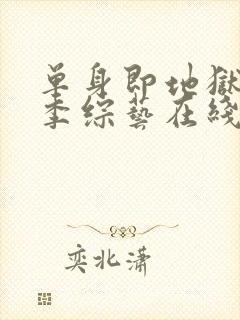 单身即地狱
季综艺在线
奕北潇